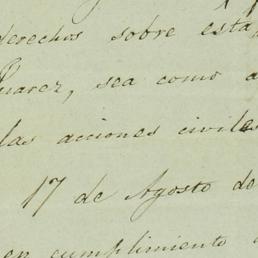 derechos sobre esta
Juarez, sea como a
las acciones civiles
17 de Agosto de
en cumplimiento